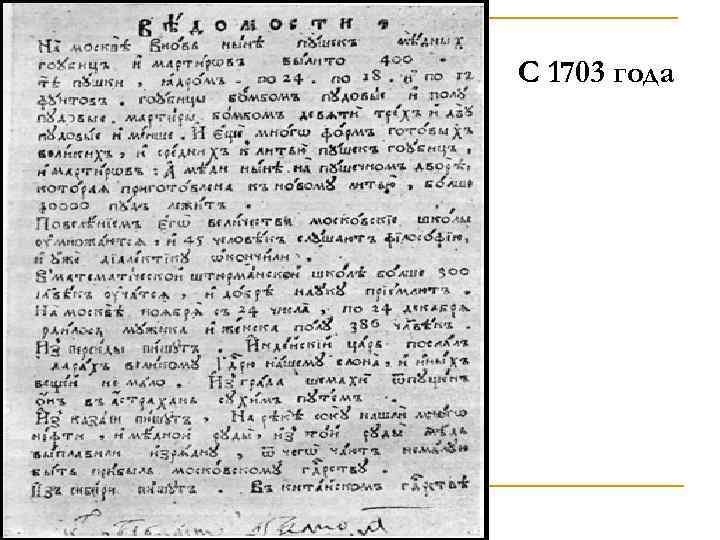 ВѢДОМОСТИ
На москвѣ вновь нынѣ пушекъ мѣдныхъ
гоубицъ и мартировъ вылито 400.
тѣ пушки, ядромъ по 24. по 18. и по 12
фунтовъ. гоубицы бомбомъ пудовые и полу
пудовые. мартиры бомбомъ девяти трехъ и двꙋ
пудовые и менше. И еще много формъ готовыхъ
великихъ, и среднихъ к литью пушекъ гоубицъ,
и мартировъ: А мѣди нынѣ на пушечномъ дворѣ,
которая приготовлена къ новому литью, болше
40000 пудъ лежитъ.
Повелѣніемъ егѡ величества московскіе школы
оумножаются, и 45 человѣкъ слушаютъ філософію,
и уже діалектіку ѡкончили.
В математіческой штюрманской школѣ болше 300
чл҃вѣкъ оучатся, и добрѣ науку пріемлютъ.
На москвѣ ноября съ 24 числа, по 24 декабря
родилось мужеска и женска полу 386 чл҃вѣкъ.
Из персиды пишутъ. Индѣйскій царь послалъ
въ дарахъ великому Гд҃рю нашему слона, и иныхъ
вещей не мало. Из града шемахи ѿпущенъ
ѡнъ въ астрахань сухимъ путемъ.
Из казани пишутъ. На рѣкѣ соку нашли много
нефти, и мѣдной руды, из той руды мѣдь
выплавили изрядну, ѿ чегѡ чаютъ немалую
быть прибыль московскому гд҃рству.
Изъ сибири пишутъ. Въ китайскомъ гд҃рствѣ
С 1703 года